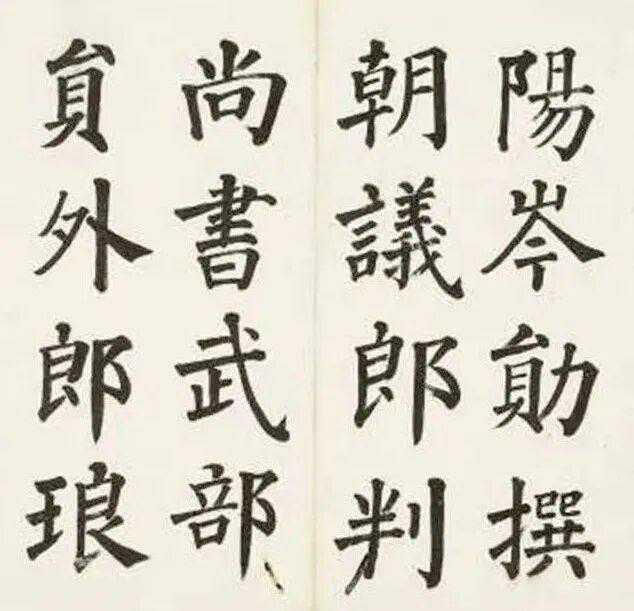 陽岑勛撰
朝議郎判
尚書武部
員外郎琅